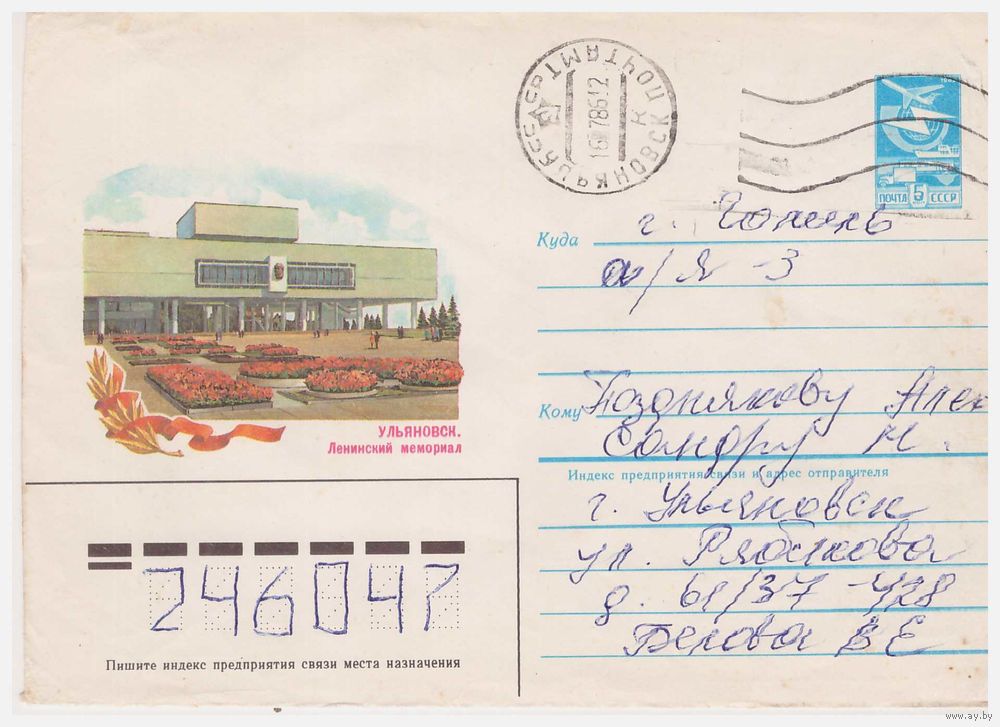 УЛЬЯНОВСК ПОЧТАМТ
К
16 786 12
1982
ПОЧТА 5 СССР
Куда г. Гомель
а/я - 3
Кому Позднякову Алек
сандру Н.
Индекс предприятия связи и адрес отправителя
г. Ульяновск
ул. Рябикова
д. 61/37 - 428
Белова В Е
УЛЬЯНОВСК.
Ленинский мемориал
246047
Пишите индекс предприятия связи места назначения
www.ay.by